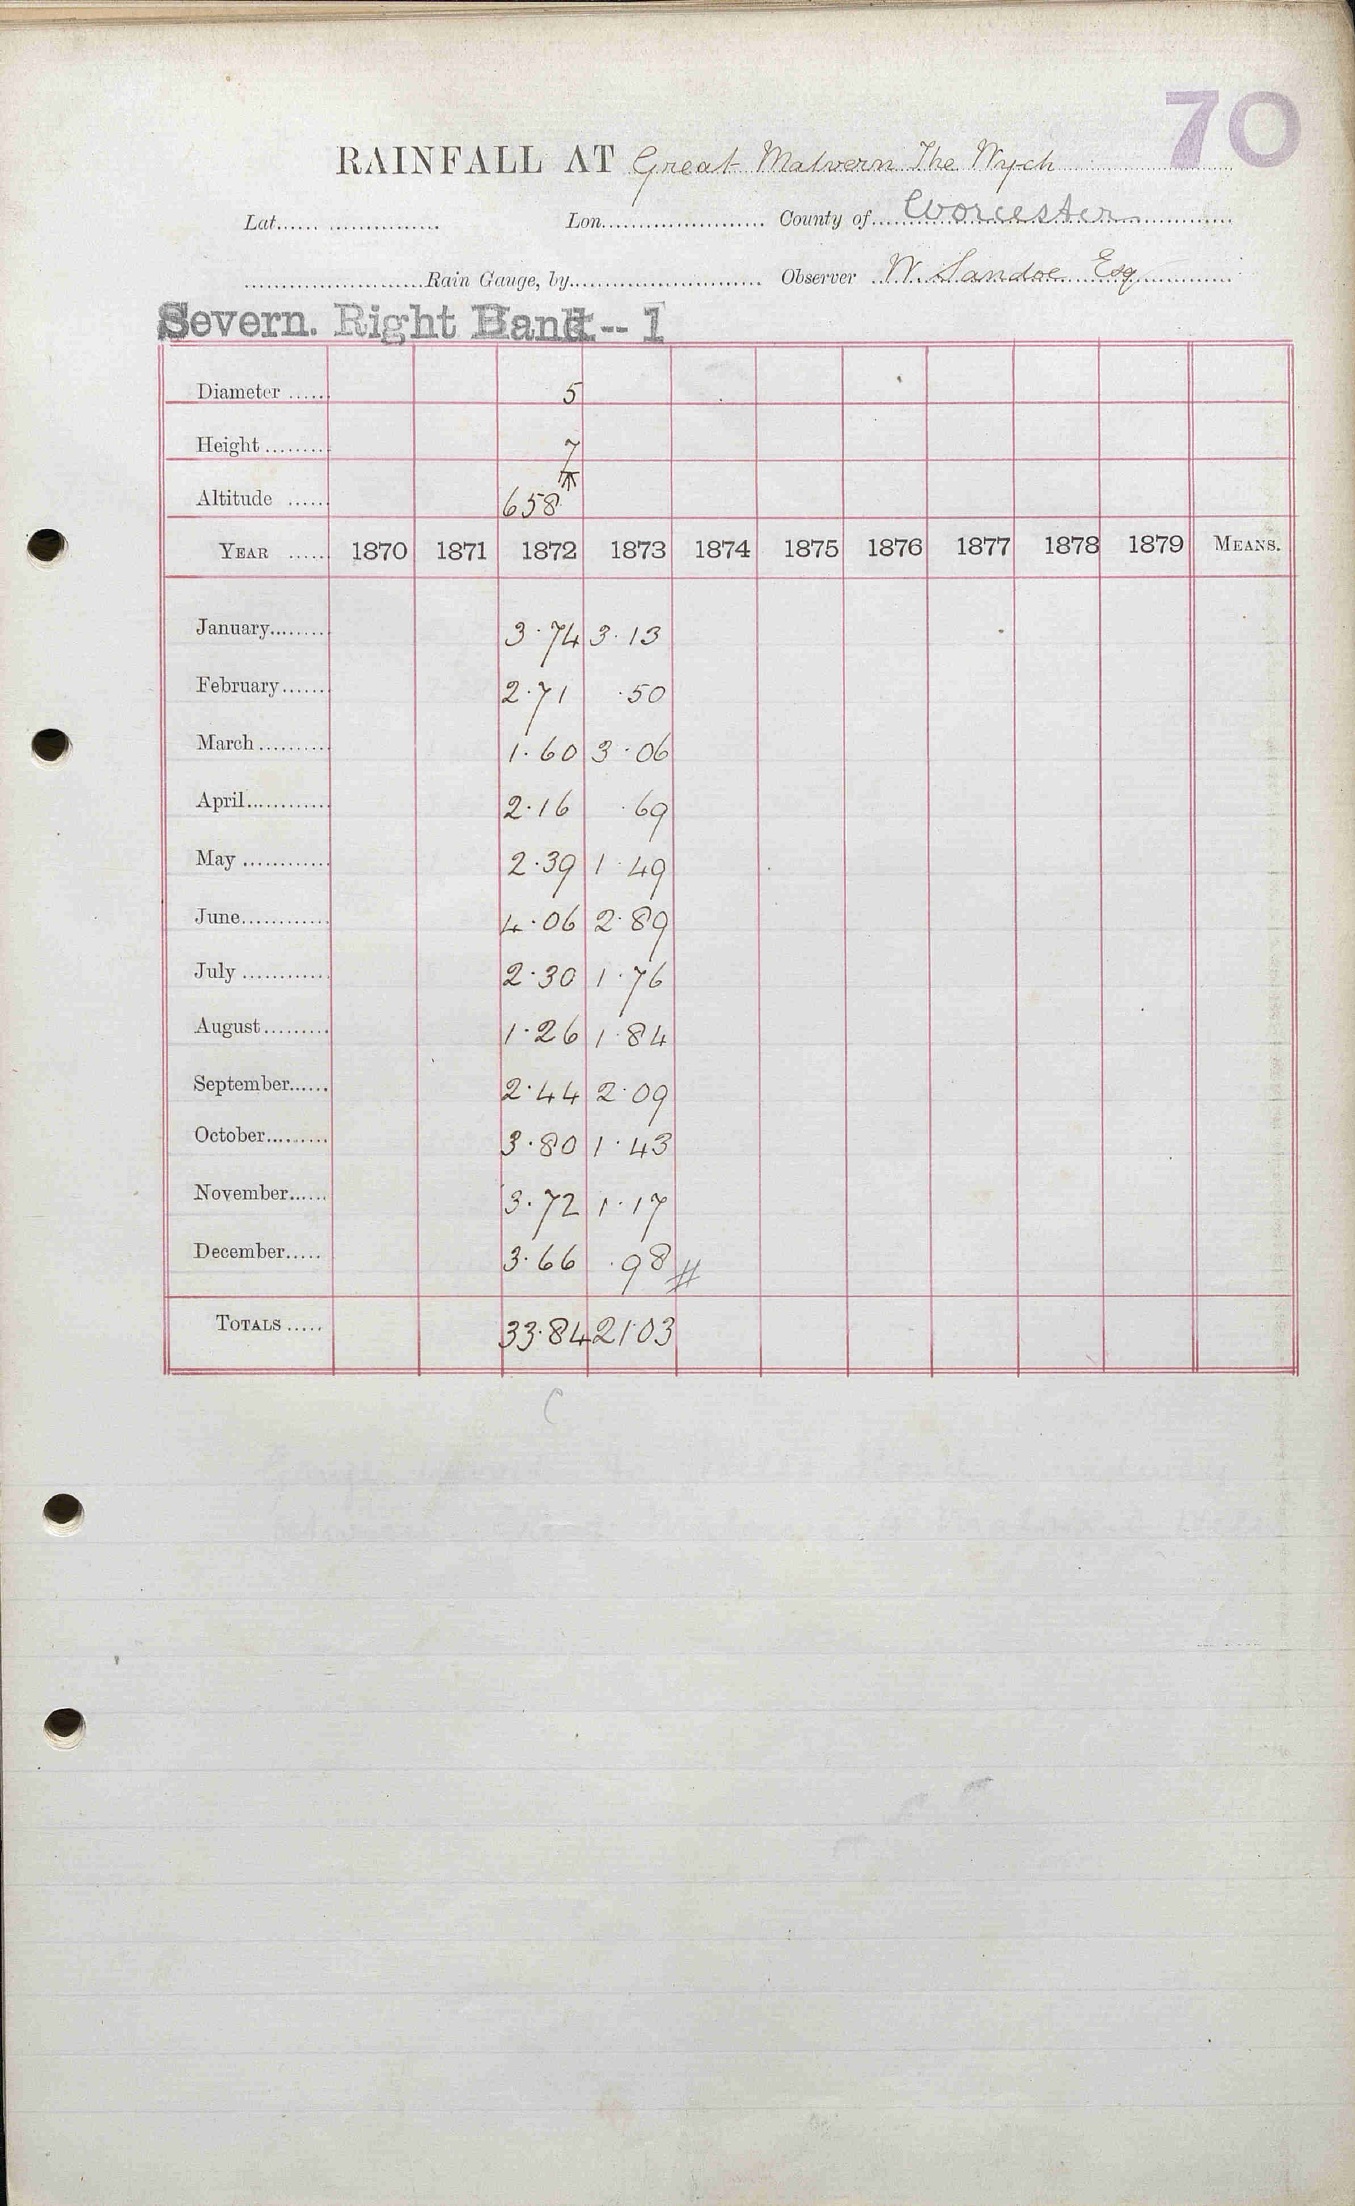 70
RAINFALL AT Great Malvern The Wych
Lat. Lon. County of Worcester
Rain Gauge, by Observer W. Sandoe Esq
Severn. Right Bank -- 1
Diameter 5
Height 7
Altitude 658
YEAR 1870 1871 1872 1873 1874 1875 1876 1877 1878 1879 MEANS.
January 3.74 3.13
February 2.71 .50
March 1.60 3.06
April 2.16 .69
May 2.39 1.49
June 4.06 2.89
July 2.30 1.76
August 1.26 1.84
September 2.44 2.09
October 3.80 1.43
November 3.72 1.17
December 3.66 .98 #
TOTALS 33.84 21.03
C